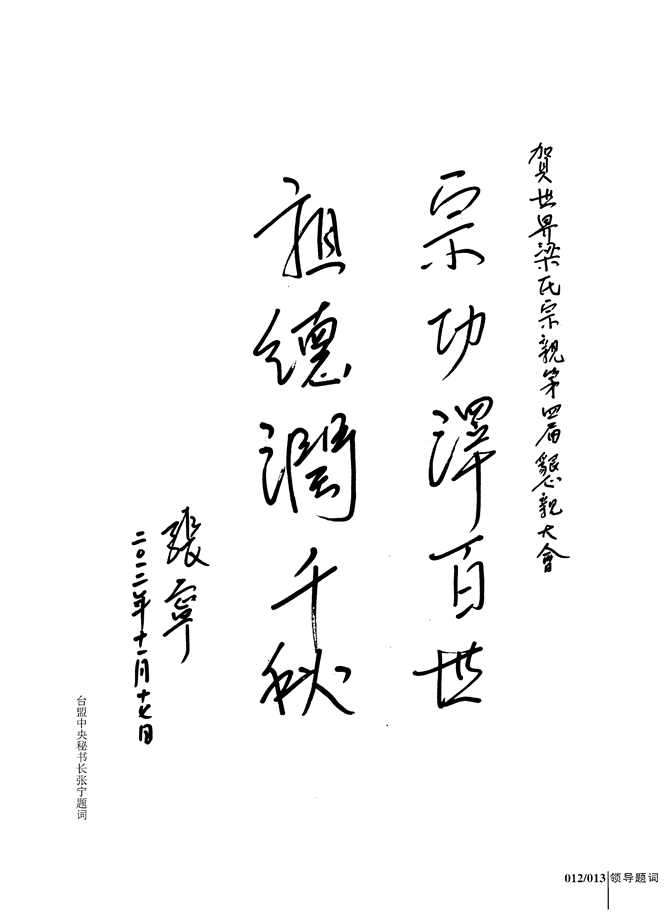 賀世界梁氏宗親第四届懇親大會
宗功澤百世
祖德潤千秋
張寧
二〇一二年十一月十七日
台盟中央秘书长张宁题词
012/013 领导题词